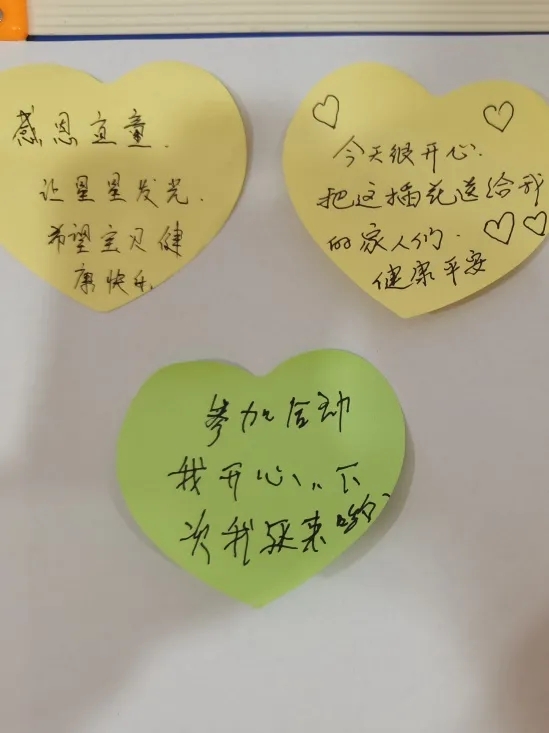 感恩宜童.
让星星发光.
希望宝贝健
康快乐.
今天很开心.
把这插花送给我
的家人们.
健康平安
参加活动
我开心、、下
次我还来哈